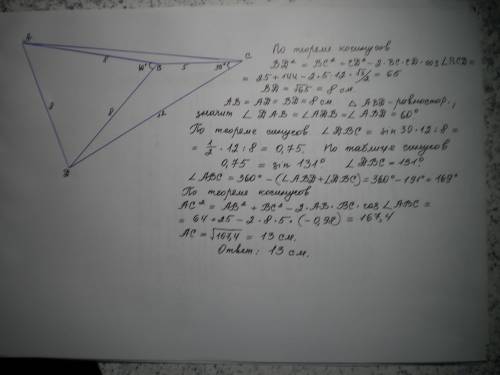 A
B
C
D
8
8
8
5
12
30°
По теореме косинусов
BD² = BC² + CD² - 2·BC·CD·cos∠BCD =
= 25+144 - 2·5·12·√3/2 = 65
BD = √65 = 8 см.
AB = AD = BD = 8 см △ ABD - равностор.,
значит ∠DAB = ∠ADB = ∠ABD = 60°
По теореме синусов ∠DBC = sin 30·12:8 =
= 1/2 · 12 : 8 = 0,75. По таблице синусов
0,75 = sin 131° ∠DBC = 131°
∠ABC = 360° - (∠ABD+∠DBC) = 360° - 191° = 169°
По теореме косинусов
AC² = AB² + BC² - 2·AB·BC·cos∠ABC =
= 64 + 25 - 2·8·5·(-0,98) = 167,4
AC = √167,4 = 13 см.
Ответ: 13 см.